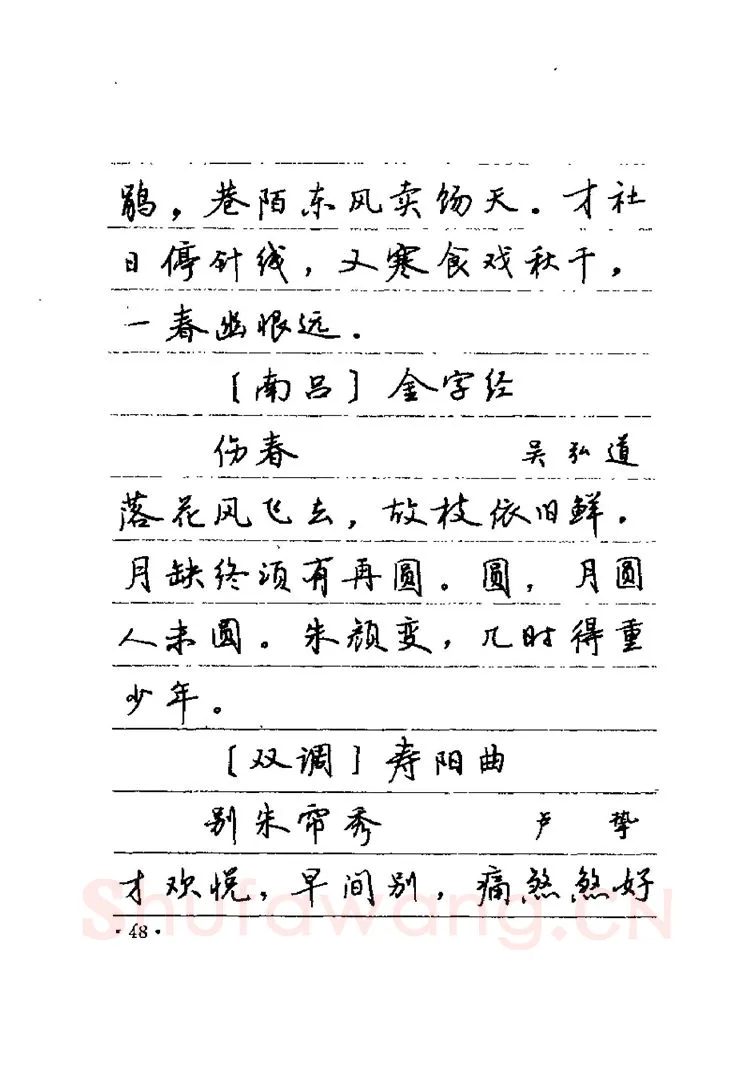 鹃，巷陌东风卖饧天。才社
日停针线，又寒食戏秋千，
一春幽恨远.
[南吕] 金字经
伤春 吴弘道
落花风飞去，故枝依旧鲜.
月缺终须有再圆。圆，月圆
人未圆。朱颜变，几时得重
少年。
[双调] 寿阳曲
别朱帘秀 卢挚
才欢悦，早间别，痛煞煞好
Shufawang.CN
·48·